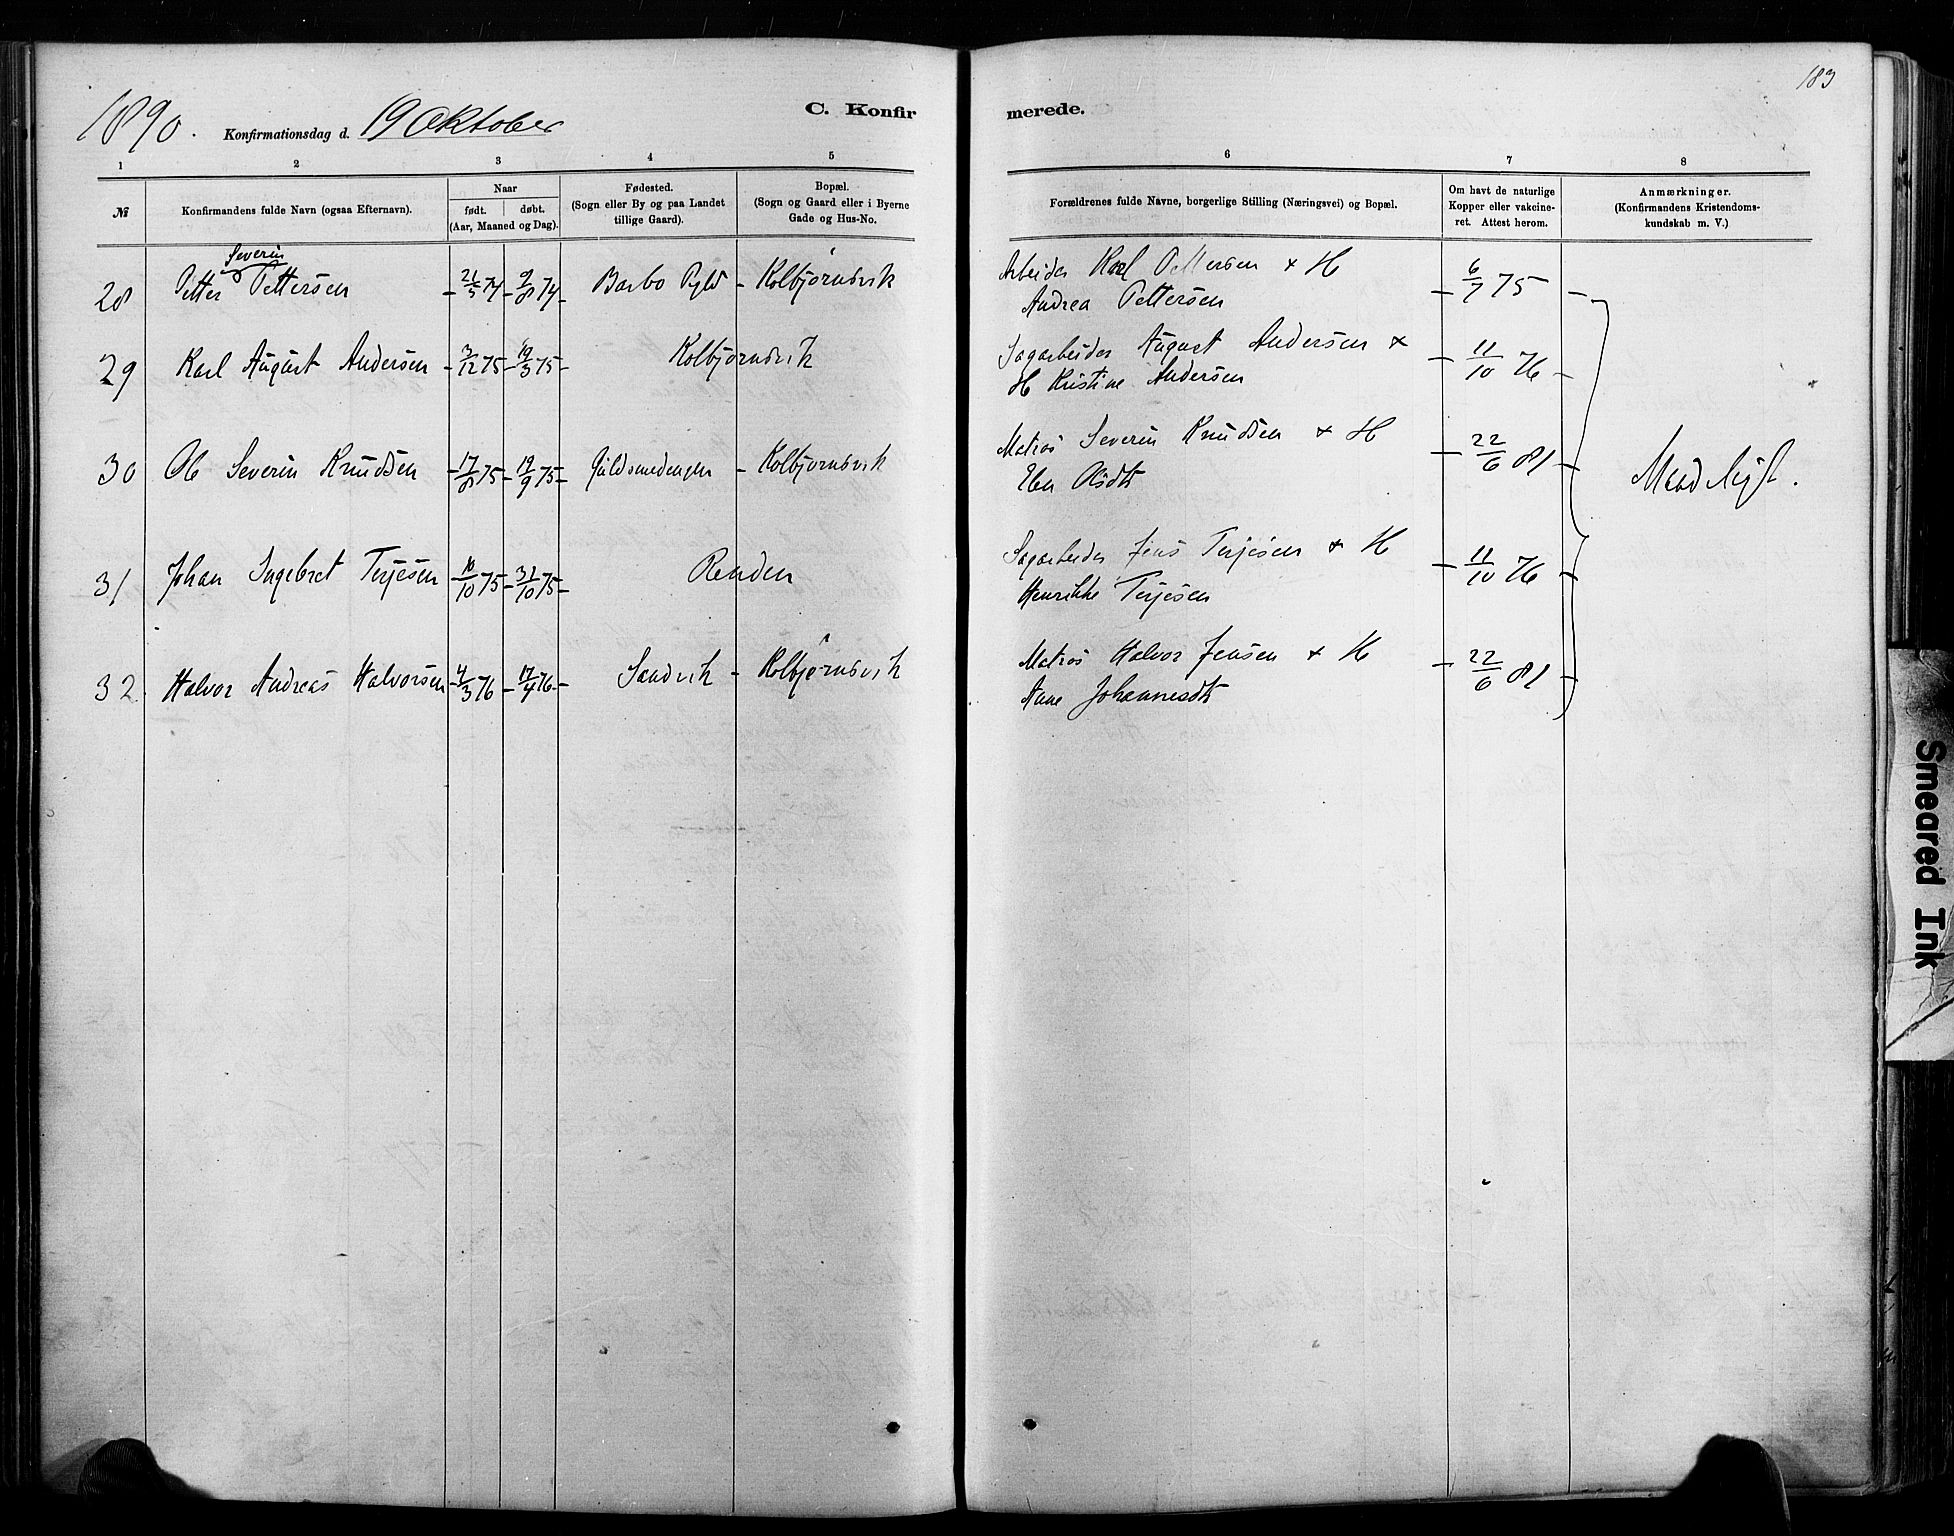 183
1890. Konfirmationsdag d. 19 Oktober C. Konfirmerede.
1 2 3 4 5 6 7 8
№ Konfirmandens fulde Navn (ogsaa Efternavn). Naar født. døbt. (Aar, Maaned og Dag). Fødested. (Sogn eller By og paa Landet tillige Gaard). Bopæl. (Sogn og Gaard eller i Byerne Gade og Hus-No. Forældrenes fulde Navne, borgerlige Stilling (Næringsvei) og Bopæl. Om havt de naturlige Kopper eller vakcineret. Attest herom. Anmærkninger. (Konfirmandens Kristendomskundskab m. V.)
Severin
28 Petter Pettersen 21/5 74 9/8 74 Barbo - Kolbjørnsvik Arbeider Karl Pettersen + H 6/7 75
Andrea Pettersen
29 Karl August Andersen 75 19/3 75 Kolbjørnsvik Sagarbeider August Andersen + 11/10 76
H Kristine Andersen
30 Ole Severin Knudsen 17/8 75 19/9 75 Guldsmedengen - Kolbjørnsvik Matros Severin Knudsen + H 22/6 81
Olsdt
Meod.
31 Johan Ingebret Terjesen 10/10 75 31/10 75 Renden Sagarbeider Jens Terjesen + H 11/10 76
Henrikke Terjesen
32 Halvor Andreas Halvorsen 4/3 76 17/4 76 Sandvik - Kolbjørnsvik Matros Halvor Jensen + H 22/6 81
Anne Johannesdt
Smeared Ink